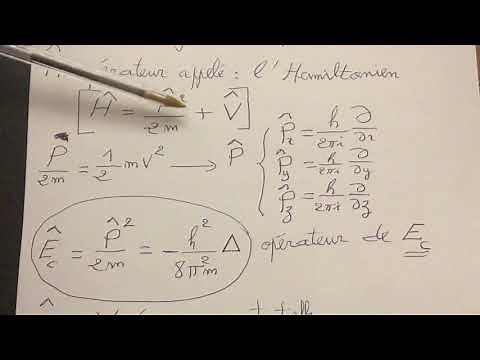 opérateur appelé : l'Hamiltonien
[Ĥ = P̂²/2m + V̂]
P/2m = 1/2 mV² → P̂ { P̂x = h/2πi ∂/∂x
P̂y = h/2πi ∂/∂y
P̂z = h/2πi ∂/∂z
Êc = P̂²/2m = - h²/8π²m Δ opérateur de Ec